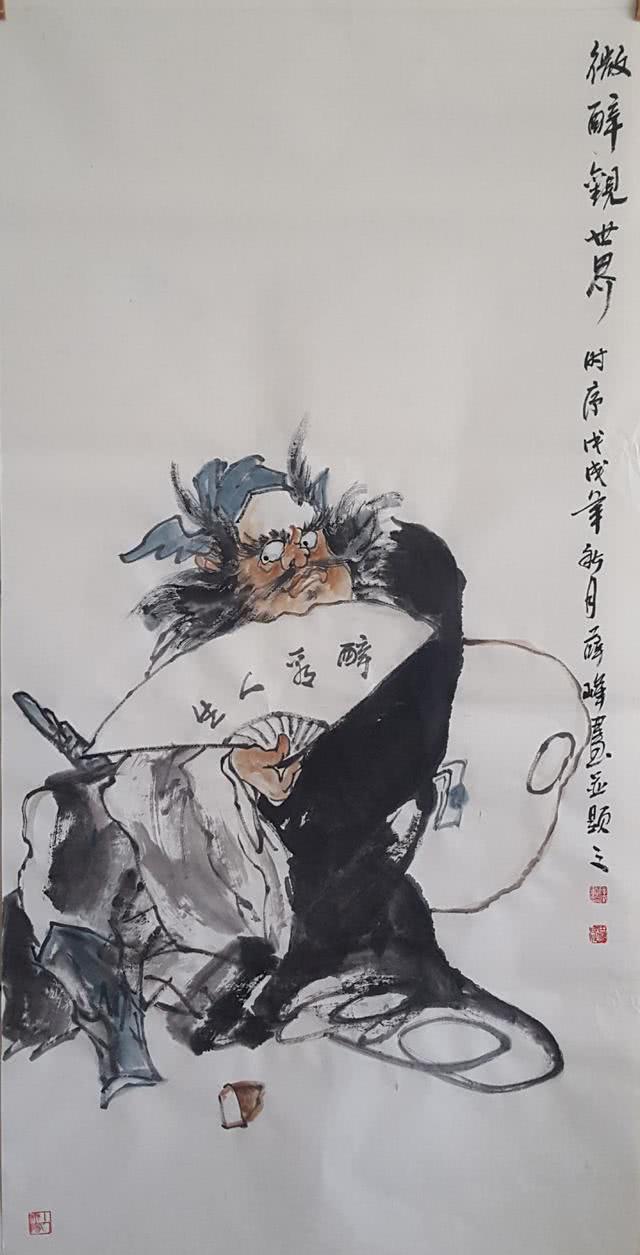 微醉觀世界 时序戊戌年秋月薛峰畫並题之
醉看人生